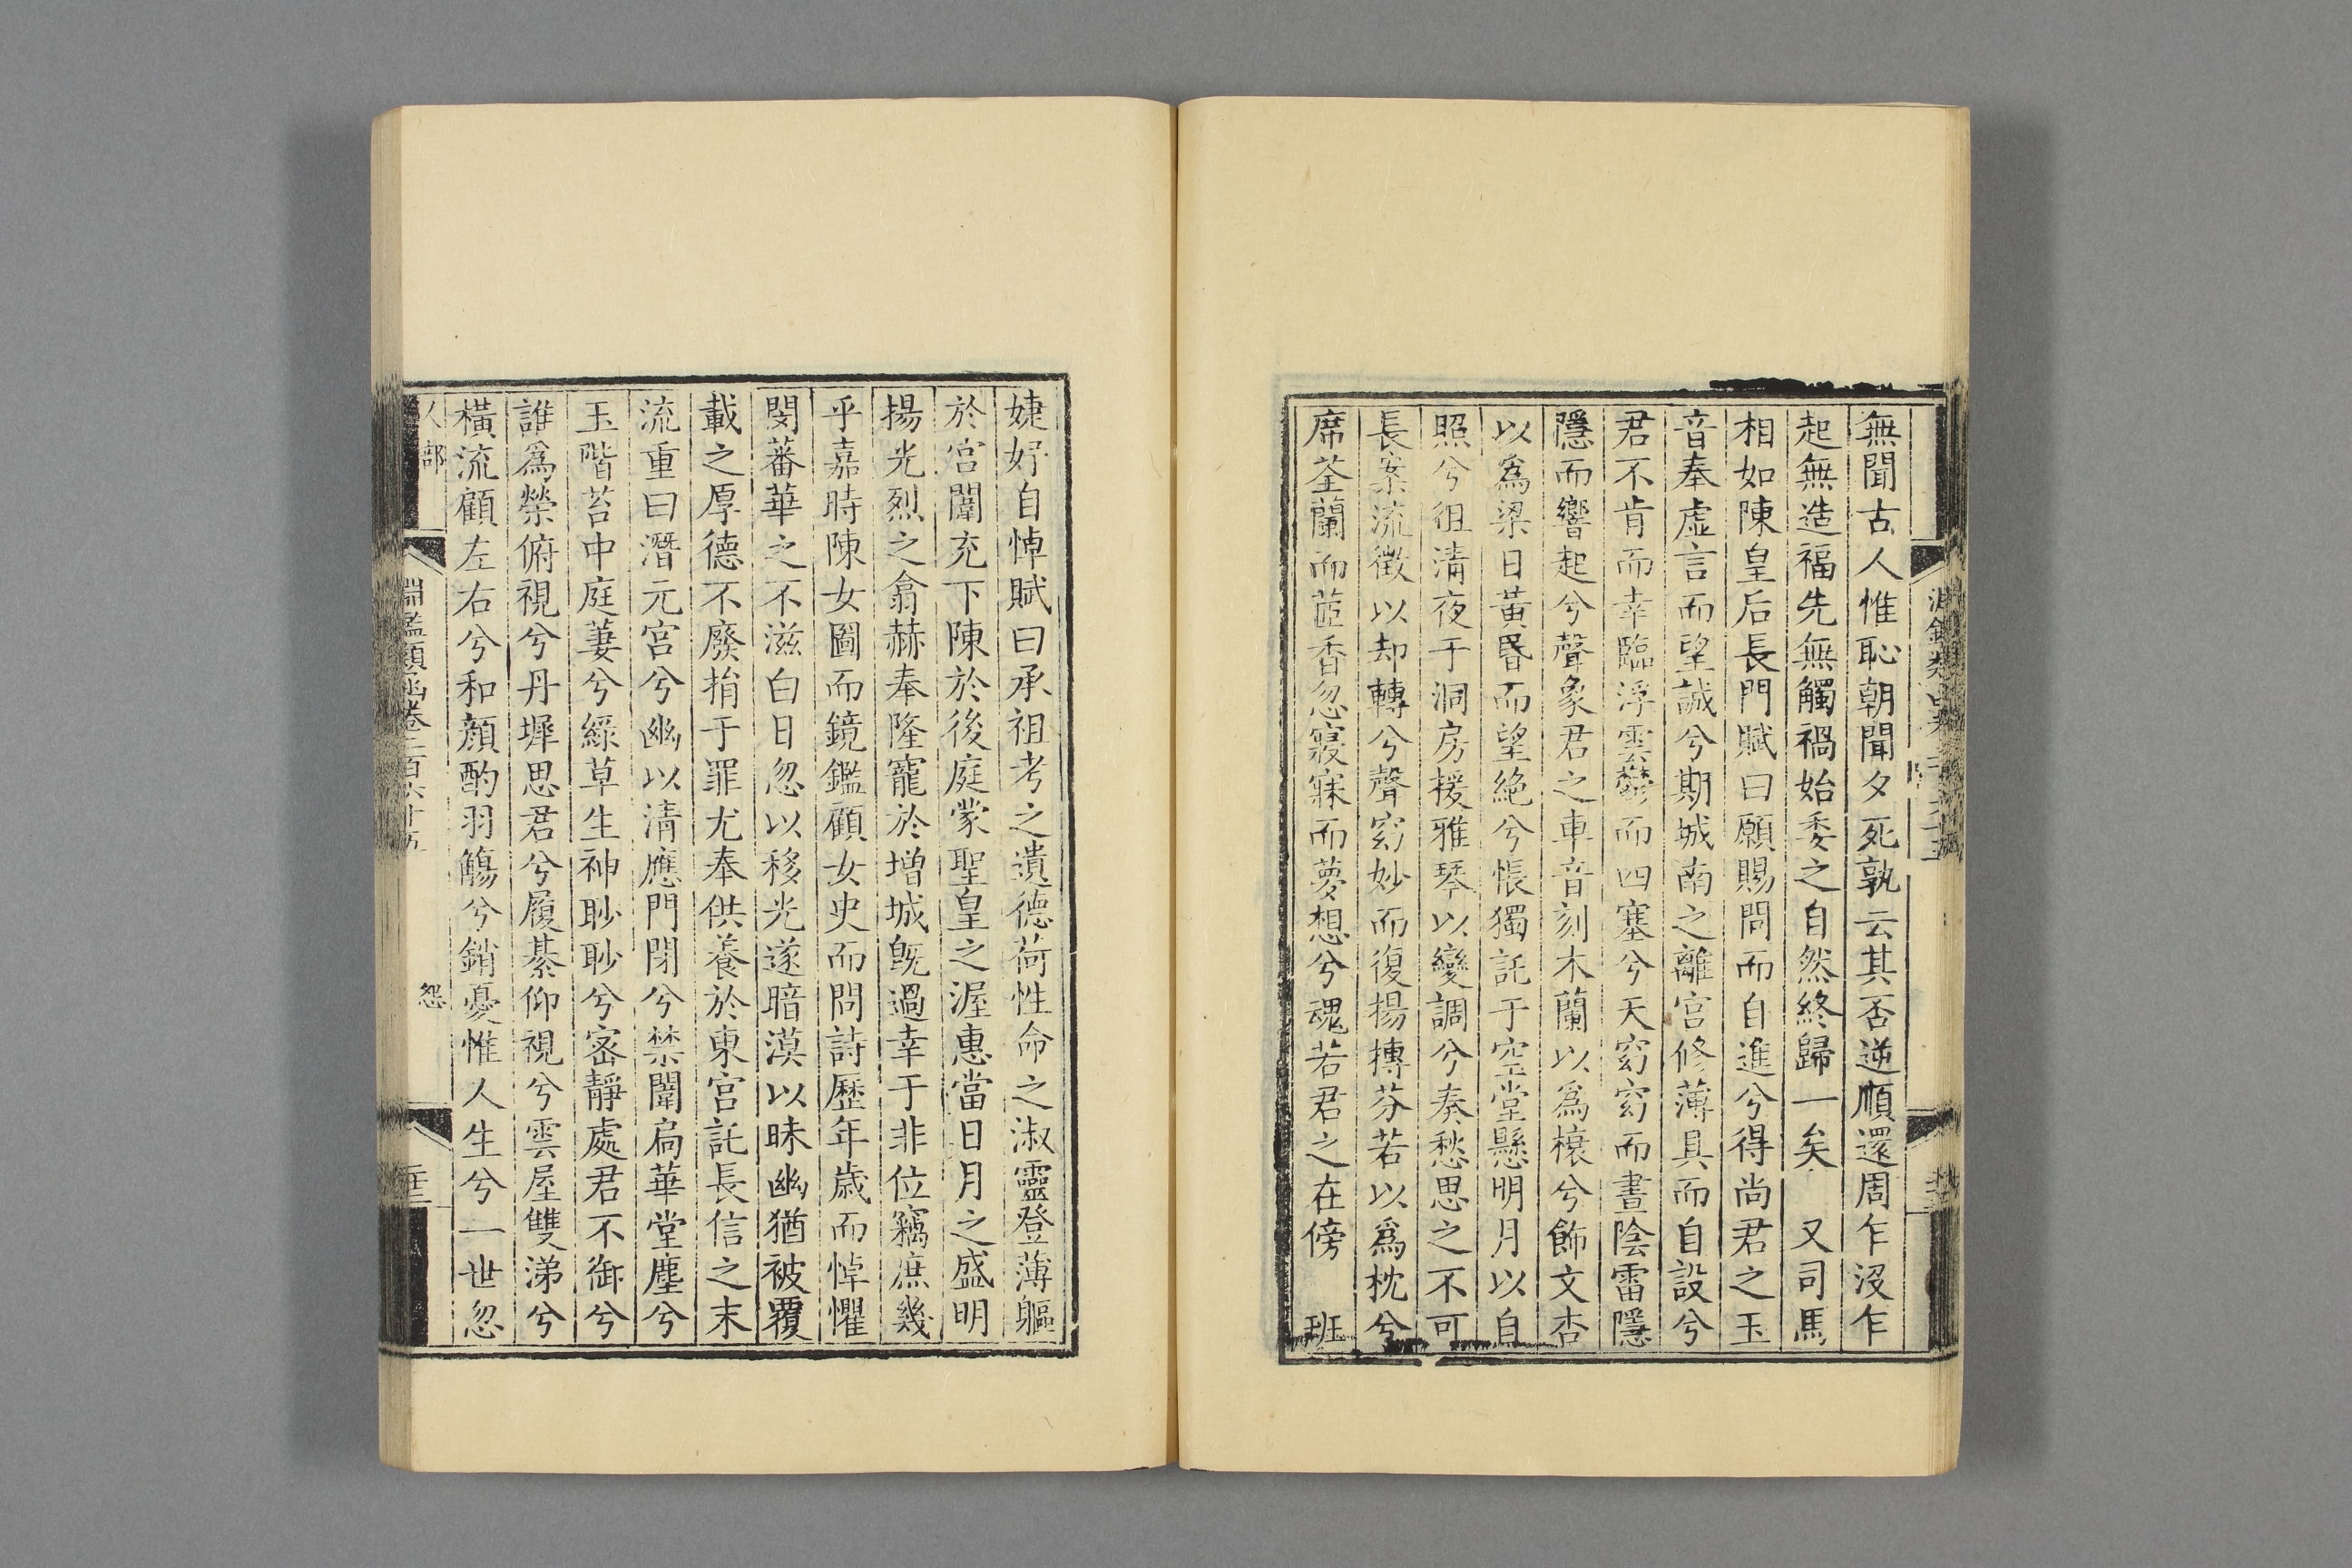 無聞古人惟恥朝聞夕死孰云其否逆順還周乍沒乍
起無造福先無觸禍始委之自然終歸一矣　又司馬
相如陳皇后長門賦曰願賜問而自進兮得尚君之玉
音奉虛言而望誠兮期城南之離宮修薄具而自設兮
君不肯而幸臨浮雲鬱而四塞兮天窈窈而晝陰雷隱
隱而響起兮聲象君之車音刻木蘭以爲榱兮飾文杏
以爲梁日黃昏而望絕兮悵獨託于空堂懸明月以自
照兮徂清夜于洞房援雅琴以變調兮奏愁思之不可
長案流徵以却轉兮聲窈妙而復揚摶芬若以爲枕兮
席荃蘭而茝香忽寢寐而夢想兮魂若君之在傍　班
婕妤自悼賦曰承祖考之遺德荷性命之淑靈登薄軀
於宮闈充下陳於後庭蒙聖皇之渥惠當日月之盛明
揚光烈之翕赫奉隆寵於增城旣過幸于非位竊庶幾
乎嘉時陳女圖而鏡鑑顧女史而問詩歷年歲而悼懼
閔蕃華之不滋白日忽以移光遂暗漠以昧幽猶被覆
載之厚德不廢捐于罪尤奉供養於東宮託長信之末
流重曰潛元宮兮幽以清應門閉兮禁闥扃華堂塵兮
玉階苔中庭萋兮綠草生神眇眇兮密靜處君不御兮
誰爲榮俯視兮丹墀思君兮履綦仰視兮雲屋雙涕兮
橫流顧左右兮和顏酌羽觴兮銷憂惟人生兮一世忽
人部　淵鑑類函卷三百六十五　怨　三十三